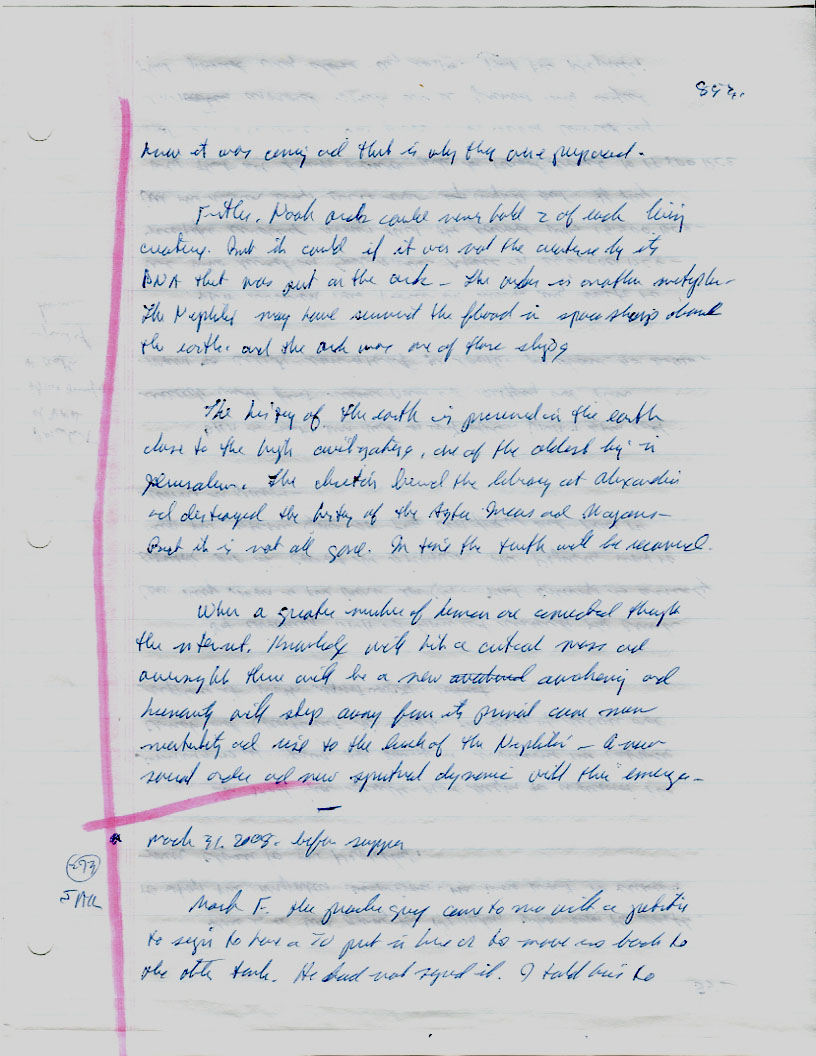 893.
knew it was coming and that is why they were prepared.
Further. Noah ark could never hold 2 of each living
creature. But it could if it was not the creature by its
DNA that was put on the ark - The ark is another metaphor -
The Nephilim may have survived the flood in spaceships above
the earth. and the ark was one of those ships
The history of the earth is preserved in the earth
close to the high civilizations, one of the oldest is in
Jerusalem. The church burned the library at Alexandria
and destroyed the history of the Aztec Incas and Mayans -
But it is not all gone. In time the truth will be recovered.
When a greater number of humans are connected through
the internet. Knowledge will hit a critical mass and
overnight there will be a new awakening and
humanity will step away from its primal cave man
mentality and rise to the level of the Nephilim - A new
social order and new spiritual dynamic will then emerge -
March 31. 2008. before supper
293
Mark F. the came to me with a petition
to sign to have a TV put in here or to move us back to
the other tank. He had not signed it. I told him to